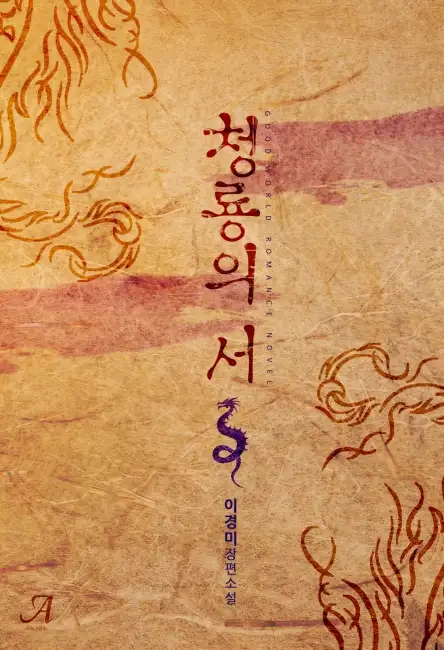 청룡의 서
GOOD WORLD ROMANCE NOVEL
이경미 장편소설
A